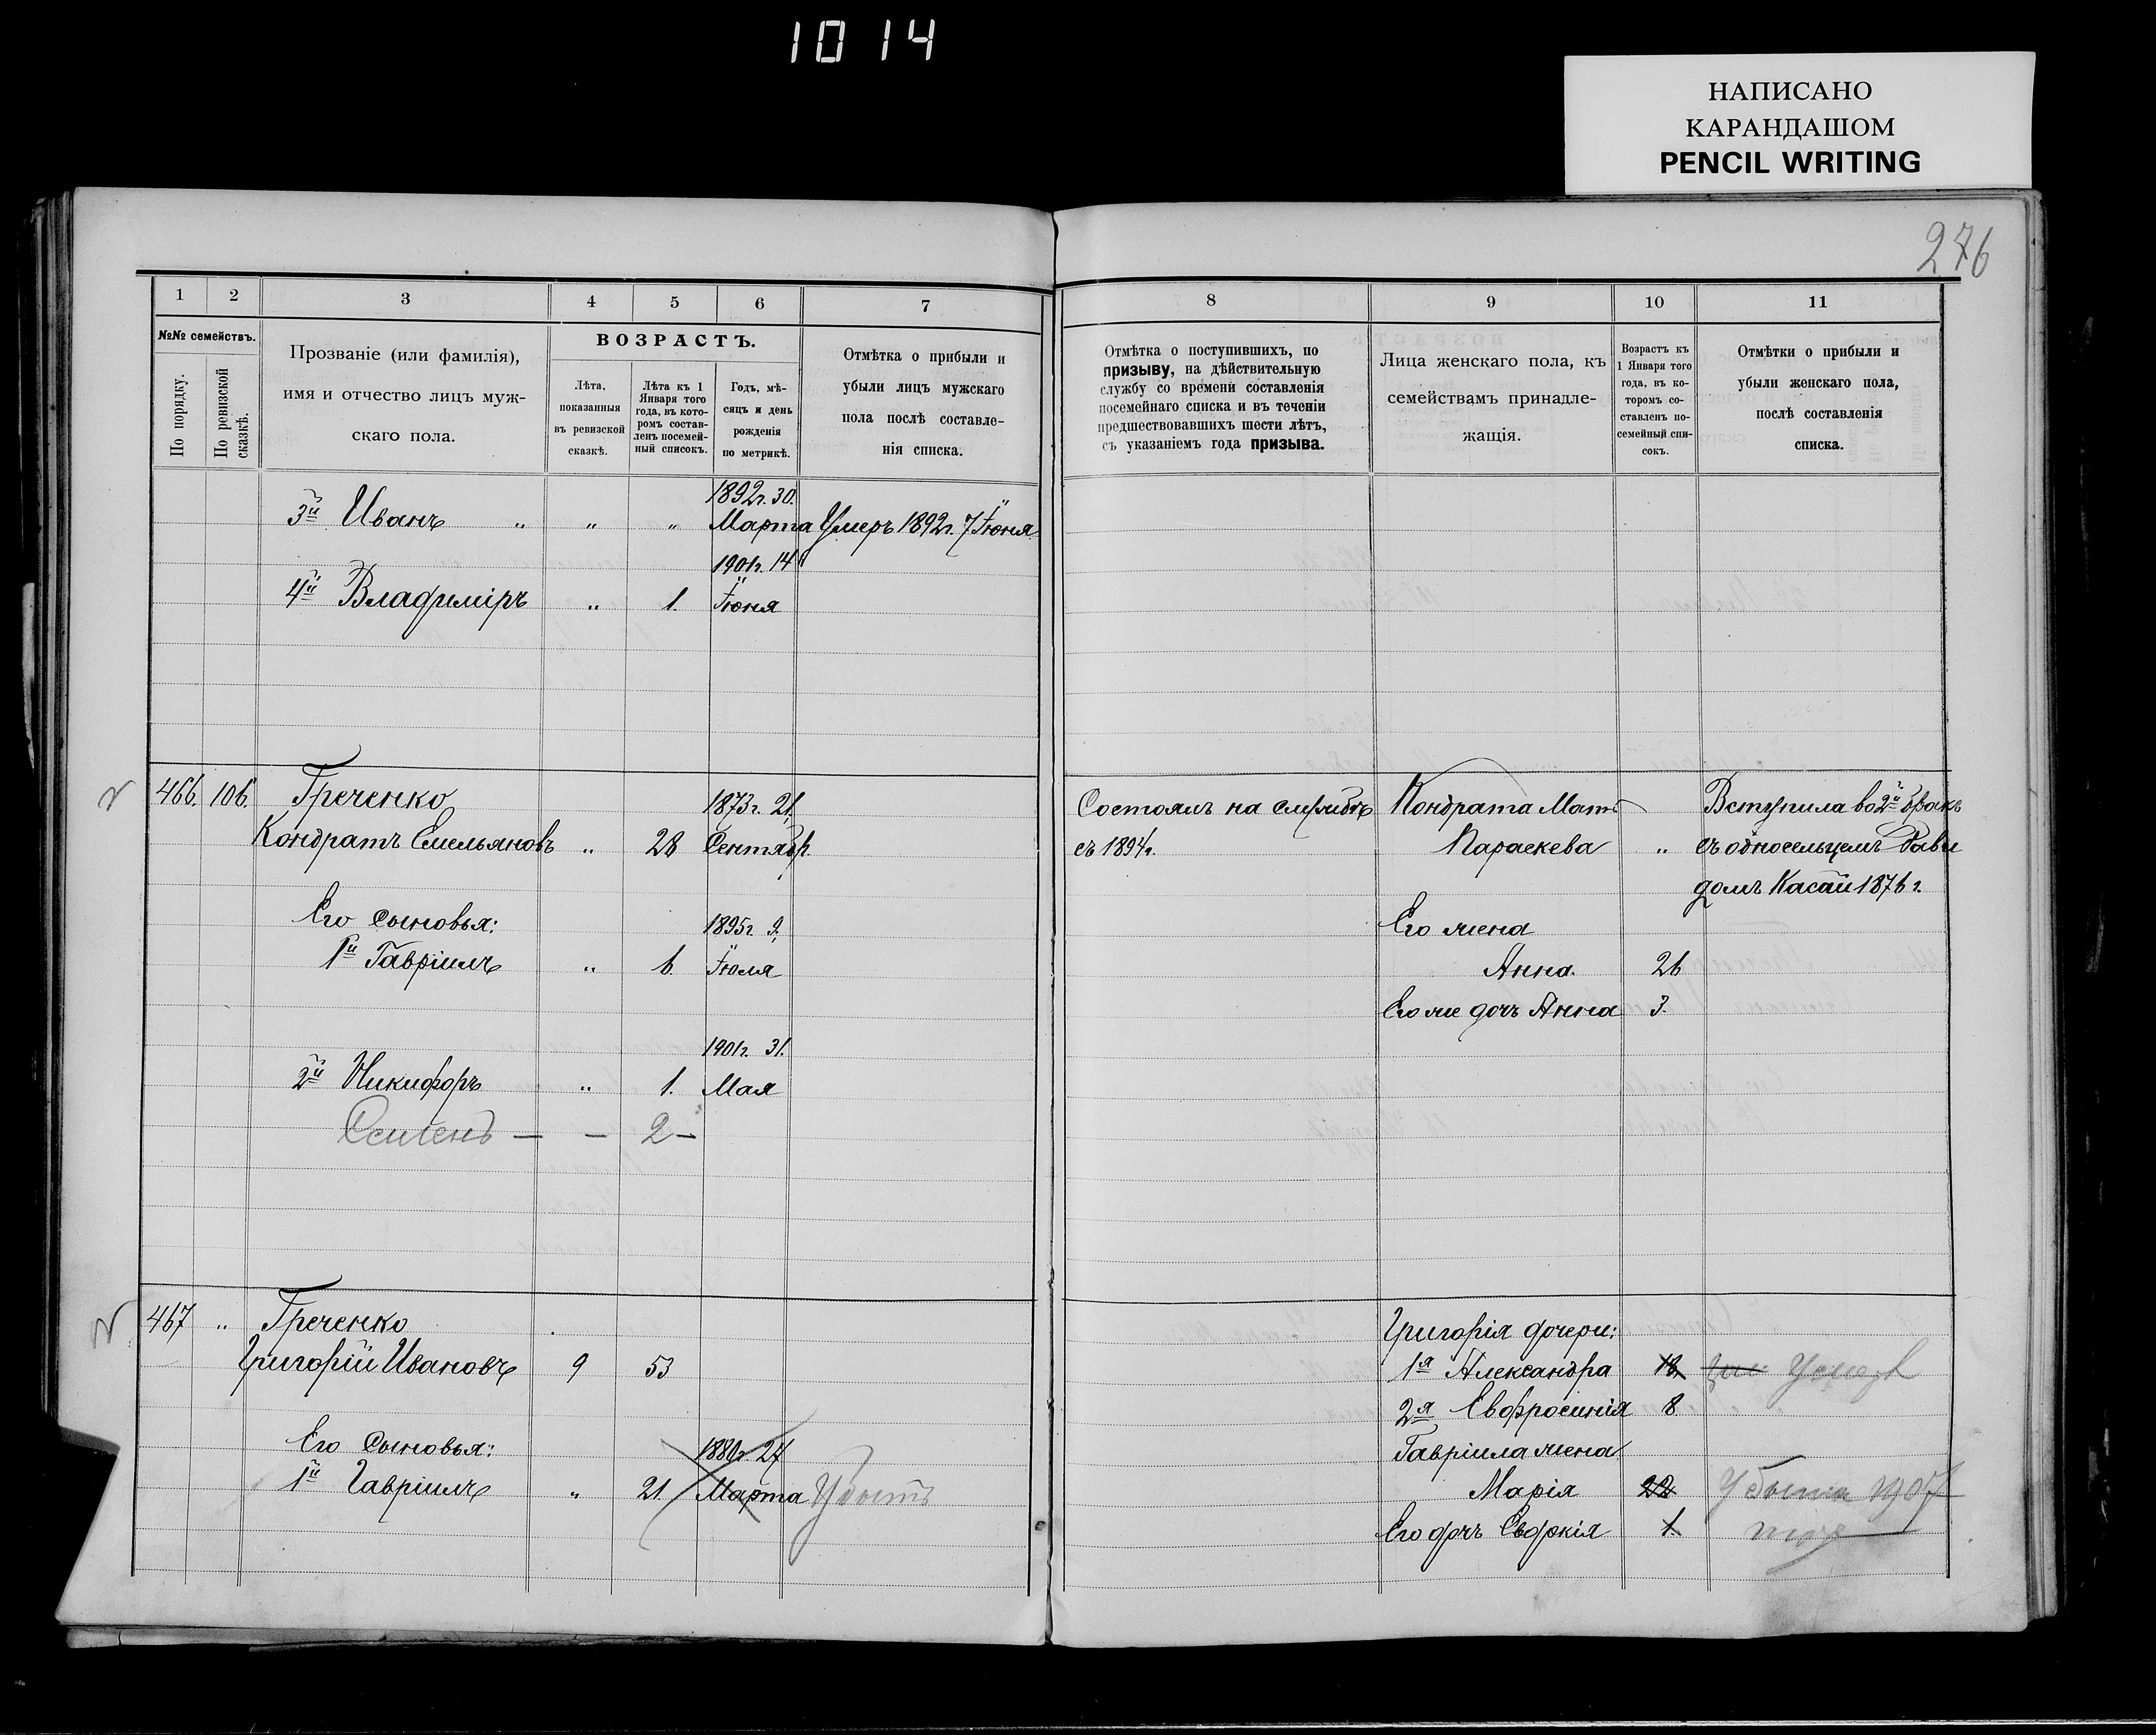 1014
НАПИСАНО
КАРАНДАШОМ
PENCIL WRITING
276
1 2 3 4 5 6 7
№№ семействъ.
По порядку.
По ревизской сказкѣ.
Прозваніе (или фамилія),
имя и отчество лицъ муж-
скаго пола.
ВОЗРАСТЪ.
Лѣта,
показанныя
въ ревизской
сказкѣ.
Лѣта къ 1
Января того
года, въ кото-
ромъ состав-
ленъ посемей-
ный списокъ.
Годъ, мѣ-
сяцъ и день
рожденія
по метрикѣ.
Отмѣтка о прибыли и
убыли лицъ мужскаго
пола послѣ составле-
нія списка.
1892г. 30.
3й Иванъ " " " Марта Умеръ 1892г. 7 Іюня
1901г. 14
4й Владиміръ " 1. Іюня
466. 106. Греченко 1873г. 21.
Кондратъ Емельяновъ " 28 Сентябр
Его сыновья: 1895г 9.
1й Гавріилъ " 6. Іюля
1901г. 31.
2й Никифоръ " 1. Мая
Семенъ — — 2 —
467 " Греченко
Григорій Ивановъ 9 53
Его сыновья: 1880г. 24
1й Гавріилъ " 21 Марта
8 9 10 11
Отмѣтка о поступившихъ, по
призыву, на дѣйствительную
службу со времени составленія
посемейнаго списка и въ теченіи
предшествовавшихъ шести лѣтъ,
съ указаніемъ года призыва.
Лица женскаго пола, къ
семействамъ принадле-
жащія.
Возрастъ къ
1 Января того
года, въ ко-
торомъ со-
ставленъ по-
семейный спи-
сокъ.
Отмѣтки о прибыли и
убыли женскаго пола,
послѣ составленія
списка.
Состоялъ на службѣ Кондрата Мать Вступила во 2й бракъ
съ 1894г. Параскева " съ односельцемъ Дави
домъ Касай 1876 г.
Его жена
Анна. 26
Его же дочь Анна 3.
Григорія дочери:
1я Александра
2я Евфросинія 8
Гавріила жена
Марія 22 Убыла 1907
Его дочь Евдокія 1 тоже